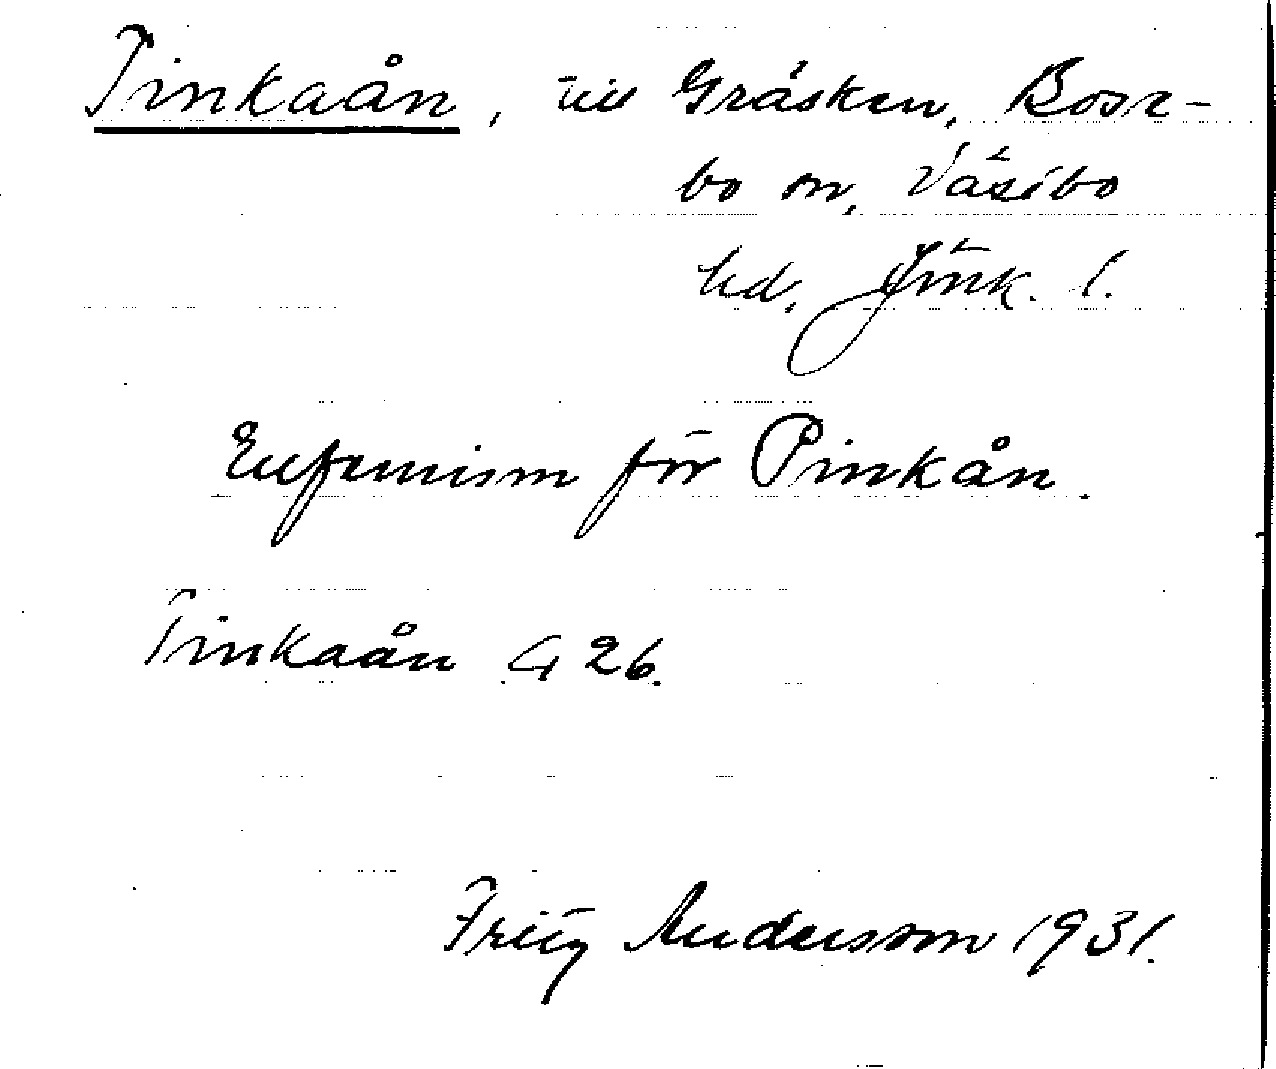 Tinkaån, till Gräsken, Bose-
bo sn, Västbo
hd, Jönk. l.
Eufemism för Pinkån.
Tinkaån G 26.
Fritz Andersson 1931.